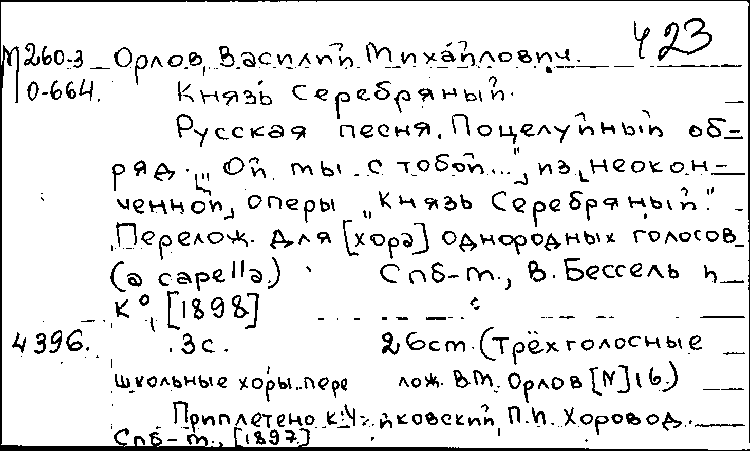 М260-3 Орлов, Василий Михайлович. 423
О-664. Князь Серебряный.
Русская песня. Поцелуйный об-
ряд. „Ой ты с тобой...", из неокон-
ченной оперы „Князь Серебряный."
Перелож. для [хора] однородных голосов
(a capella.) Спб-т., В. Бессель и
К° [1898]
4396. 3с. 26ст. (Трёхголосные
школьные хоры. пере лож. В.М. Орлов [N]16.)
Приплетено к: Чайковский, П.И. Хоровод.
Спб-т., [1897]